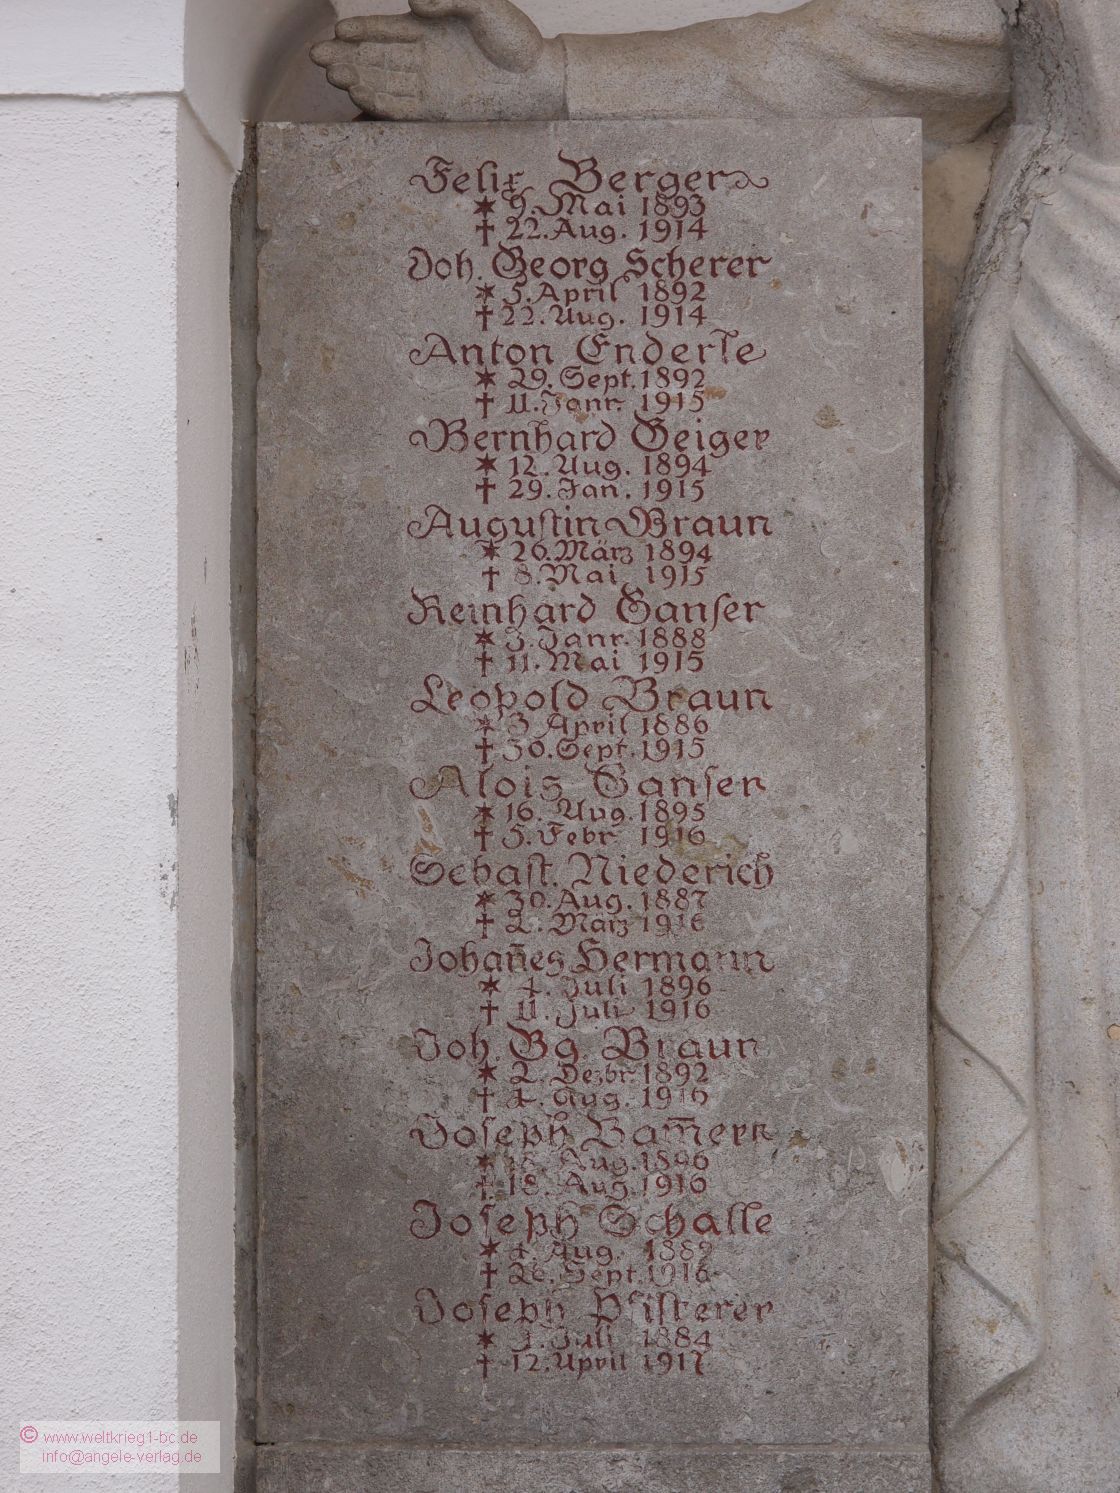 Felix Berger
* 9. Mai 1893
† 22. Aug. 1914
Joh. Georg Scherer
* 5. April 1892
† 22. Aug. 1914
Anton Enderle
* 29. Sept. 1892
† 11. Janr. 1915
Bernhard Geiger
* 12. Aug. 1894
† 29. Jan. 1915
Auguſtin Braun
* 26. März 1894
† 8. Mai 1915
Reinhard Ganſer
* 3. Janr. 1888
† 11. Mai 1915
Leopold Braun
* 3. April 1886
† 30. Sept. 1915
Alois Ganſer
* 16. Aug. 1895
† 5. Febr. 1916
Sebaſt. Niederich
* 30. Aug. 1887
† 2. März 1916
Johan̄es Hermann
* 4. Juli 1896
† 11. Juli 1916
Joh. Gg. Braun
* 2. Dezbr. 1892
† 4. Aug. 1916
Joſeph Bam̄ert
* Aug. 1896
† 18. Aug. 1916
Joſeph Schalle
* 4. Aug. 1882
† Sept. 1916
Joſeph Pfiſterer
* 3. Juli 1884
† 12. April 1917
© www.weltkrieg1-bc.de
info@angele-verlag.de